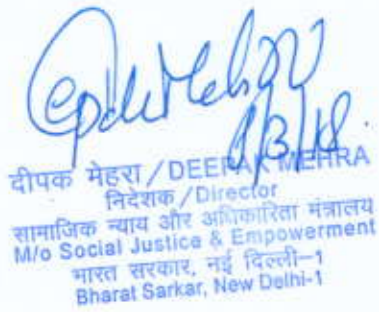 1/3/18.
दीपक मेहरा / DEEPAK MEHRA
निदेशक / Director
सामाजिक न्याय और अधिकारिता मंत्रालय
M/o Social Justice & Empowerment
भारत सरकार, नई दिल्ली-1
Bharat Sarkar, New Delhi-1